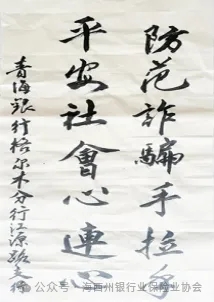 防范诈騙手拉手
平安社會心連心
青海银行格尔木分行江源路支行
公众号·海西州银行业保险业协会